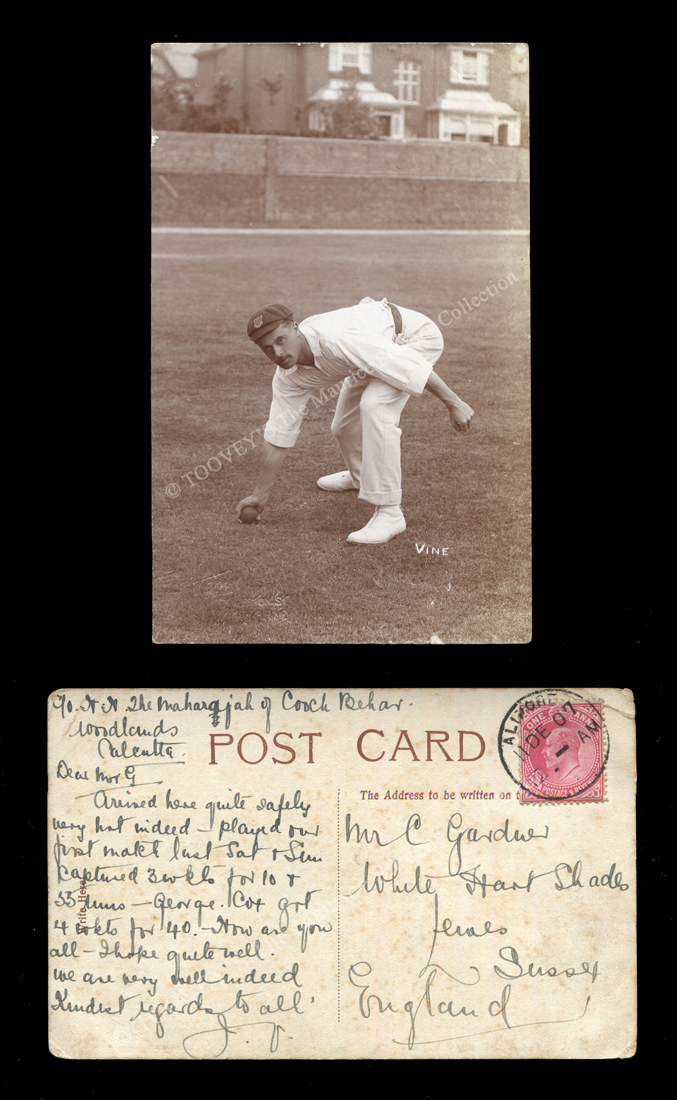 © TOOVEY'S The Maurice Collection
VINE
C/o. H. H. The Maharajah of Cooch Behar.
Woodlands
Calcutta
POST CARD
Dear Mr G
The Address to be written on t
Write Here
Arrived here quite safely
very hot indeed - played our
first match last Sat & Sun
Captured 3 wkts for 10 &
55 runs - George. Cox got
4 wkts for 40. - How are you
all - I hope quite well.
we are very well indeed
Kindest regards to all
J. V.
Mr C Gardner
White Hart Shades
Lewes
Sussex
England
ALIPORE
11 DE 07
AM
ONE ANNA
POSTAGE &